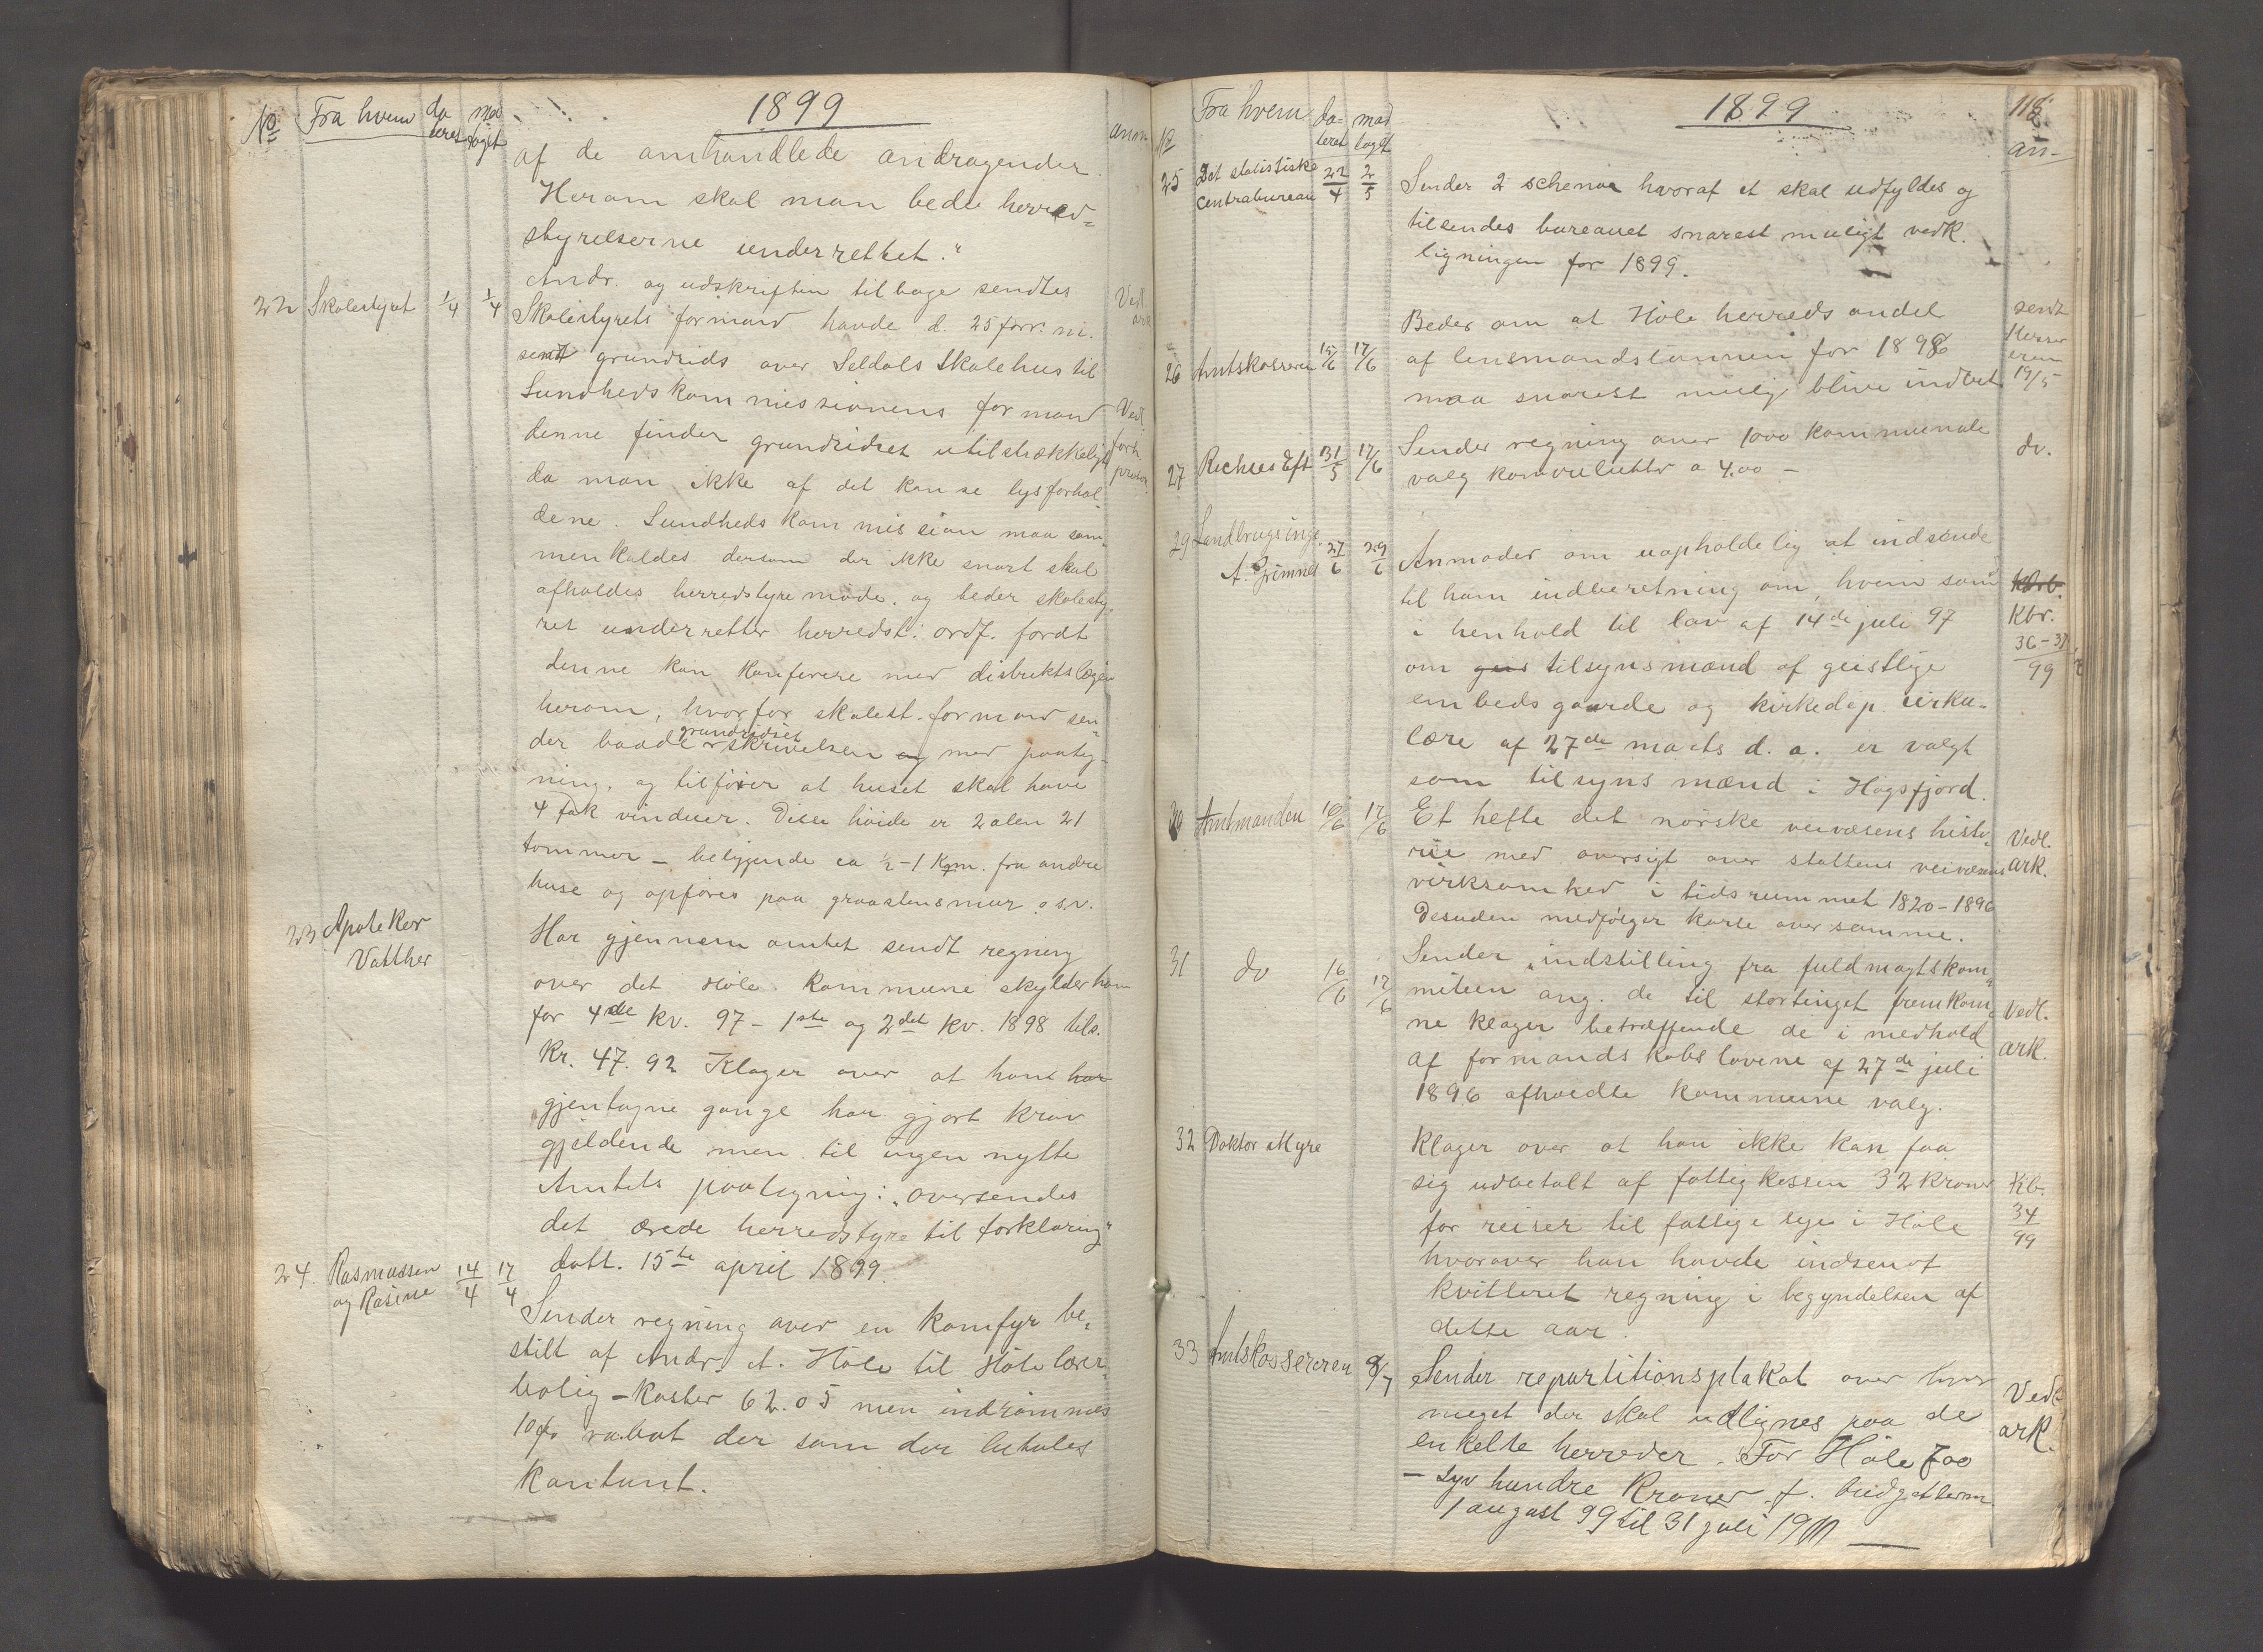 1899
No Fra hvem da teret mod taget anm
af de omhandlede andragender.
Herom skal man bede herred-
styrelserne underrettet."
Andr. og udskriften tilbage sendtes
22 Skolestyret 1/4 1/4 Skolestyrets formand havde d. 25 forr. m. Vedl. ark
sendt grundrids over Seldals Skolehus til
Sundhedskommissionens formand
denne finder grundridset utilstrækkeligt Vedl. forh.
da man ikke af det kan se lysforhol-
dene. Sundhedskommission maa sam-
menkaldes dersom der ikke snart skal
afholdes herredstyremøde. og beder skolesty-
ret underretter herredst. ordf. fordt
denne kan konferere med distriktslægen
herom, hvorfor skolest. formand sen-
der baade grundridset skrivelsen og med paateg-
ning, og tilføier at huset skal have
4 fak vinduer. Disse høide er 2 alen 21
tommer – beliggende ca ½-1 Km. fra andre
huse og opføres paa graastensmur osv.
23 Apoteker Vatther Har gjennem amtet sendt regning
over det Høle kommune skylder ham
for 4de kv. 97 – 1ste og 2det kv. 1898 tils.
Kr. 47.92 Klager over at hans har
gjentagne gange har gjort krav
gjeldende men til ingen nytte
Amtets paategning: "oversendes
det ærede herredstyre til forklaring"
datt. 15te april 1899.
24. Rasmussen og Rasine 14/4 17/4
Sender regning over en komfyr be-
stilt af Andr. A. Høle til Høle lærer-
bolig – koster 62.05 men indrømmes
10% rabat der som der betales
kontant.
1899
118
No Fra hvem da- teret mod taget an-
25 Det statistiske Centrabureau 22/4 2/5 Sender 2 schemaer hvoraf et skal udfyldes og
tilsendes bureauet snarest muligt vedk.
ligningen for 1899.
Beder om at Høle herreds andel sendt
26 Amtskasseren 15/6 17/6 af lensmandslønnen for 1898 Kasser eren
maa snarest mulig blive indbet 19/5
27 Rechus Eft 31/5 17/6 Sender regning over 1000 kommunale do.
valg konvolutter a 4.00 –
29 Landbrugsinge A. Grimnes 27/6 29/6 Anmoder om uopholdelig at indsende
til ham indberetning om, hvem som Kbr.
i henhold til lov af 14de juli 97 36-37/99
om geis tilsynsmænd af geistlige
embedsgaarde og kirkedep. cirku-
lære af 27de marts d. a. er valgt
som tilsynsmænd i Høgsfjord.
30 Amtmanden 10/6 17/6 Et hefte det norske veivæsens histo-
rie med oversigt over stattens veivæsens Vedl. ark.
virksomhed i tidsrummet 1820-1896
Desuden medfølger karte over samme.
31 do 16/6 17/6 Sender "indstilling fra fuldmagtskom-
miteen ang. de til stortinget fremkom-
ne klager betræffende de i medhold Vedl. ark.
af formandskabslovene af 27de juli
1896 afholdte kommune valg.
32 Doktor Myre Klager over at han ikke kan faa
sig udbetalt af fattigkassen 32 kroner Kb.
for reiser til fattige syge i Høle 34/99
hvorover han havde indsendt
kvitteret regning i begyndelsen af
dette aar.
33 Amtskassereren 8/7 Sender repartitionsplakat over hvor Vedl ark.
meget der skal udlignes paa de
enkelte herreder. For Høle 700
– syv hundre Kroner f. budgetterm.
1 august 99 til 31 juli 1900